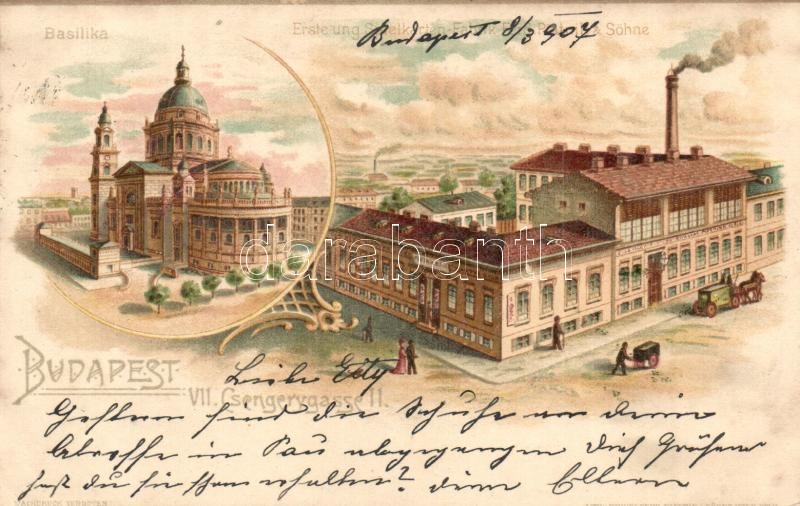 Basilika
Erste ung. Spielkarten-Fabrik & Söhne
Budapest 8/3 907
darabanth.com
BUDAPEST
VII. Csengerygasse 11.
Liebe Etty
Gestern sind die Schuhe an deine
in Pau abgegangen Dich Grüßen
hast du sie schon erhalten? deine Eltern
NACHDRUCK VERBOTEN